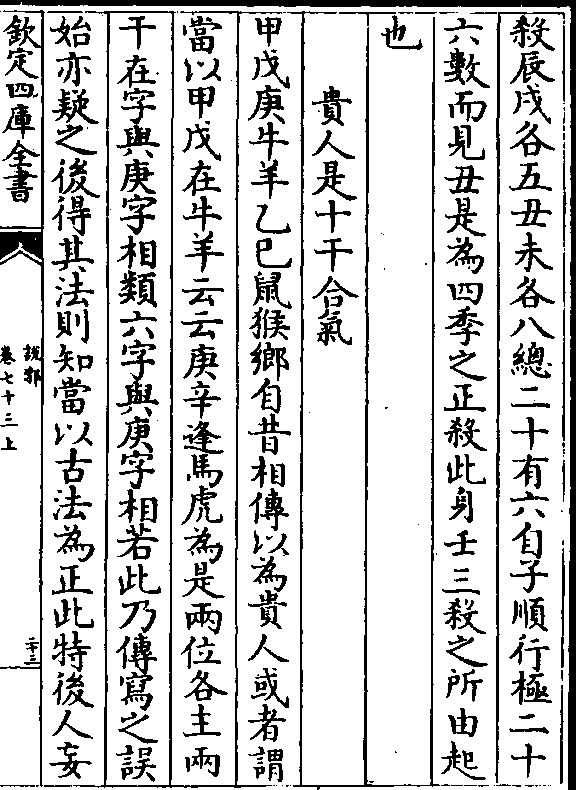 殺辰戌各五丑未各八總二十有六自子順行極二十
六數而見丑是為四季之正殺此身壬三殺之所由起
也
貴人是十干合氣
甲戊庚牛羊乙巳鼠猴鄉自昔相傳以為貴人或者謂
當以甲戊在牛羊云云庚辛逢馬虎為是兩位各主兩
干在字與庚字相類六字與庚字相若此乃傳寫之誤
始亦疑之後得其法則知當以古法為正此特後人妄
欽定四庫全書
說郛
卷七十三上
二十三